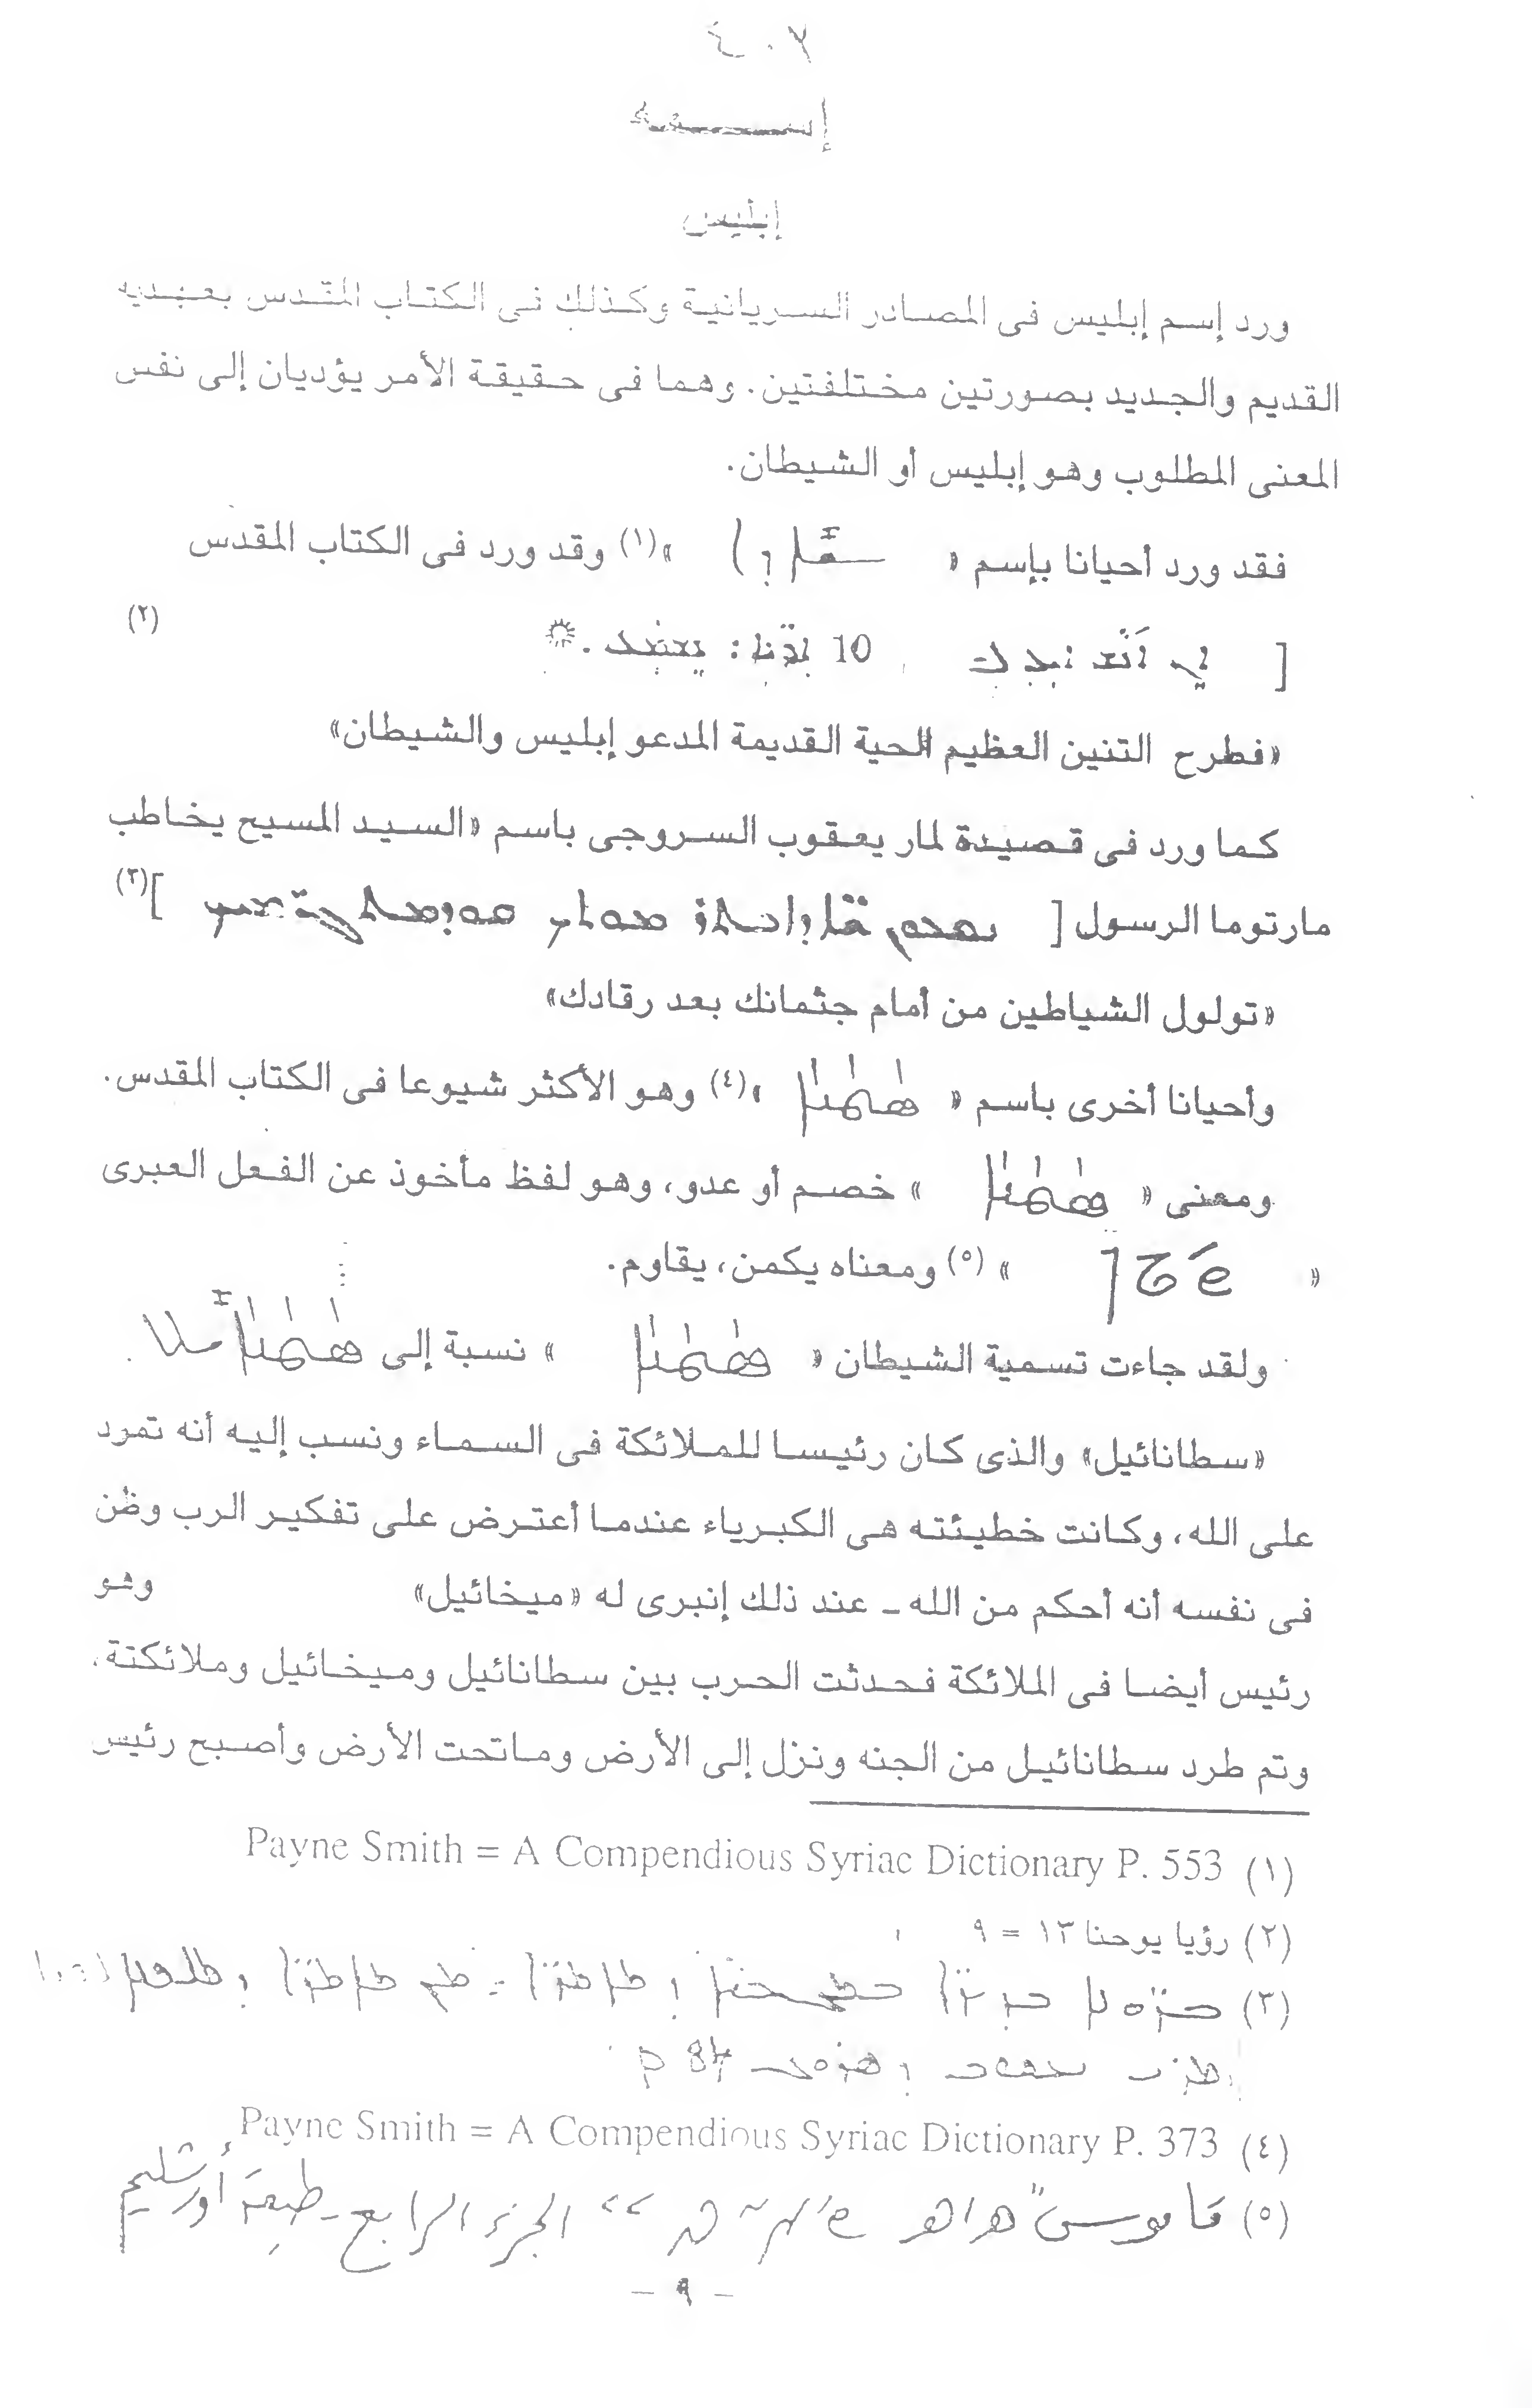 ٣٠٤
إسمه
إبليس
ورد إسم إبليس فى المصادر السريانية وكذلك فى الكتاب المقدس بعهديه
القديم والجديد بصورتين مختلفتين. وهما فى حقيقة الأمر يؤديان إلى نفس
المعنى المطلوب وهو إبليس أو الشيطان.
فقد ورد أحيانا بإسم « » (١) وقد ورد فى الكتاب المقدس
[ 10 (٢)
«فطرح التنين العظيم الحية القديمة المدعو إبليس والشيطان»
كما ورد فى قصيدة لمار يعقوب السروجى باسم «السيد المسيح يخاطب
مارتوما الرسول [ ](٣)
«تولول الشياطين من أمام جثمانك بعد رقادك»
وأحيانا أخرى باسم « ܣܛܢܐ »(٤) وهو الأكثر شيوعا فى الكتاب المقدس.
ومعنى « ܣܛܢܐ » خصم أو عدو، وهو لفظ مأخوذ عن الفعل العبرى
« » (٥) ومعناه يكمن، يقاوم.
ولقد جاءت تسمية الشيطان « ܣܛܢܐ » نسبة إلى
«سطانائيل» والذى كان رئيسا للملائكة فى السماء ونسب إليه أنه تمرد
على الله، وكانت خطيئته هى الكبرياء عندما أعترض على تفكير الرب وظن
فى نفسه أنه أحكم من الله ـ عند ذلك إنبرى له «ميخائيل» وهو
رئيس أيضا فى الملائكة فحدثت الحرب بين سطانائيل وميخائيل وملائكتة،
وتم طرد سطانائيل من الجنه ونزل إلى الأرض وماتحت الأرض وأصبح رئيس
(١) Payne Smith = A Compendious Syriac Dictionary P. 553
(٢) رؤيا يوحنا ١٣ = ٩
(٣)
p 84
(٤) Payne Smith = A Compendious Syriac Dictionary P. 373
(٥) قاموس الجزء الرابع - طبعة أورشليم
– ٩ –